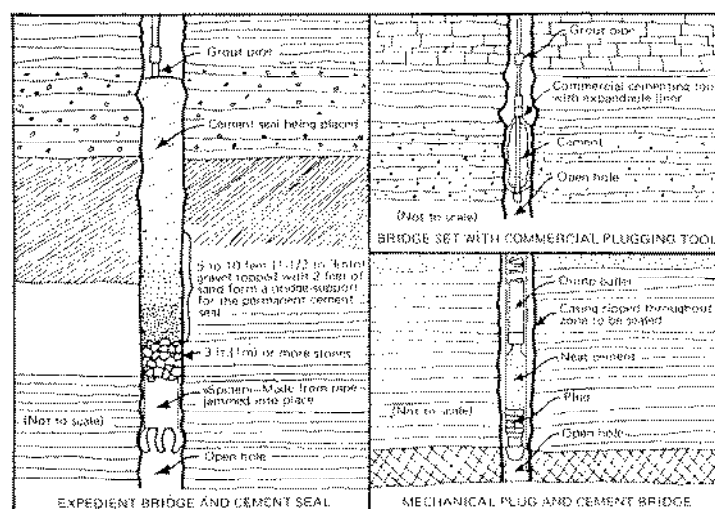 Grout pipe
Cement seal being placed
5 to 10 feet (1-1/2 to
gravel topped with 2 feet of
sand form a bridge support
for the permanent cement
seal
3 ft (1m) or more stones
Made from pipe
jammed into place
(Not to scale)
Open hole
EXPEDIENT BRIDGE AND CEMENT SEAL
Grout pipe
Commercial cementing tool
with expandable liner
Cement
Open hole
(Not to scale)
BRIDGE SET WITH COMMERCIAL PLUGGING TOOL
Dump bailer
Casing ripped throughout
zone to be sealed
Neat cement
(Not to scale)
Plug
Open hole
MECHANICAL PLUG AND CEMENT BRIDGE